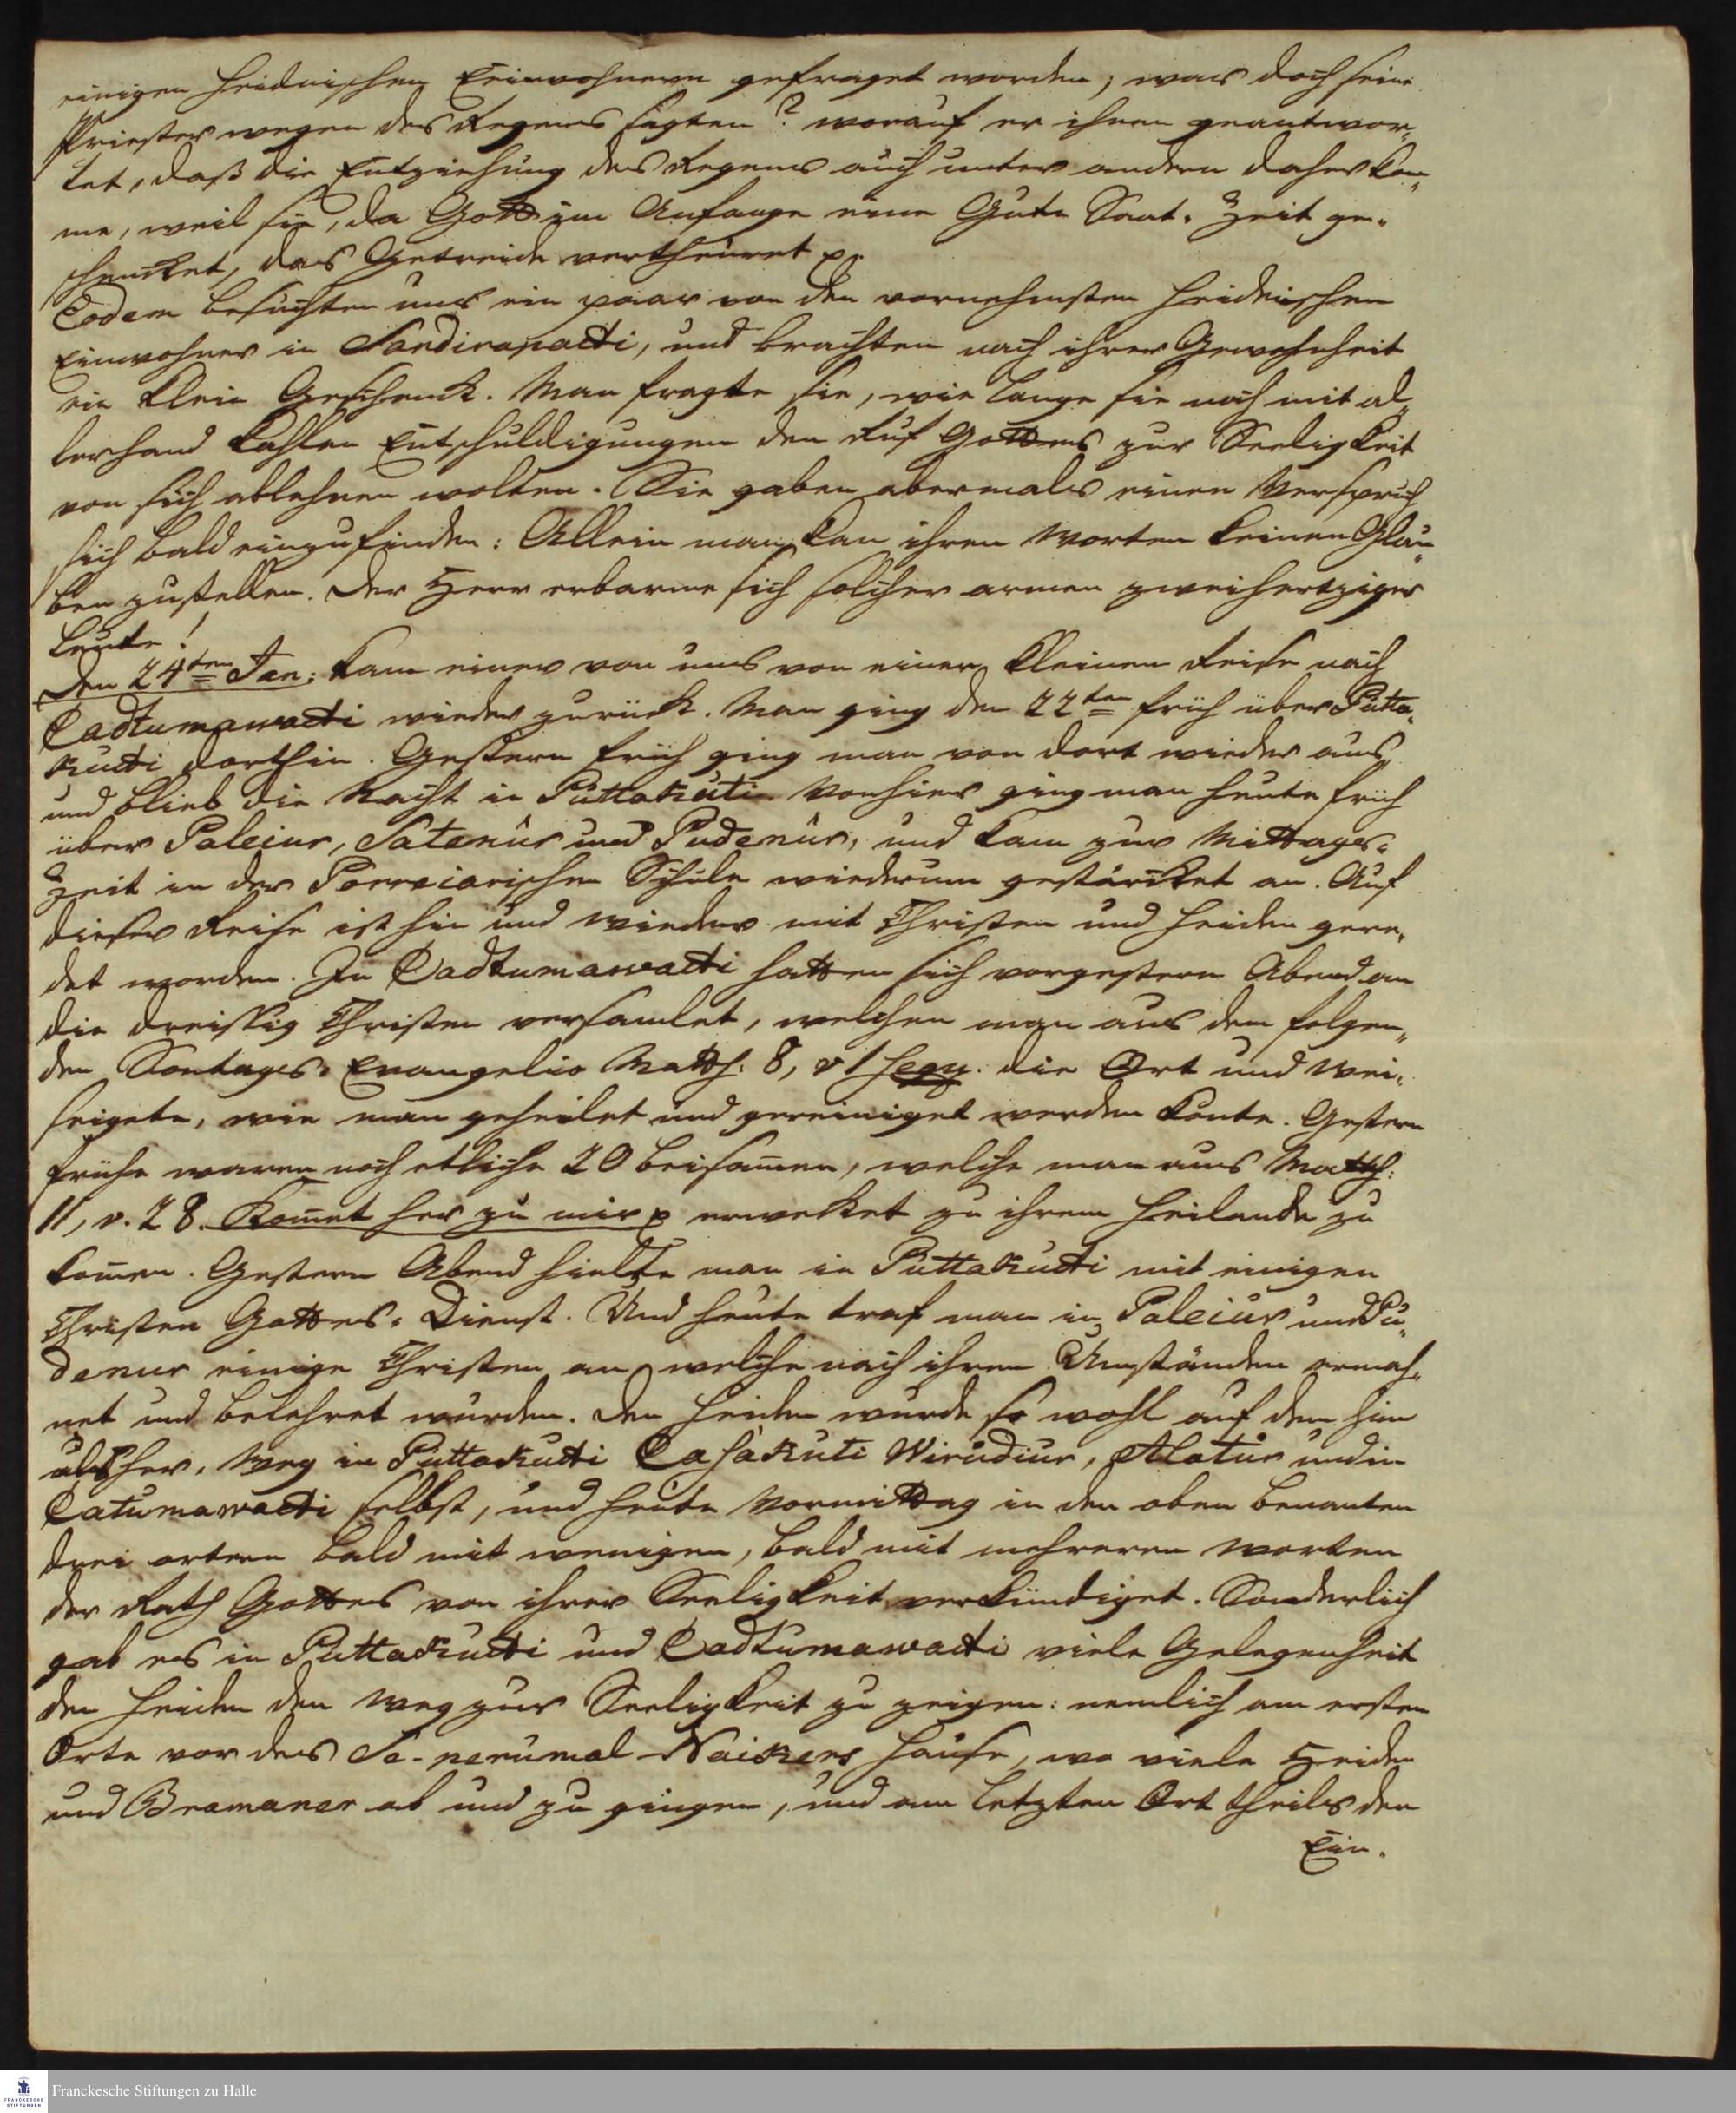 einigen heidnischen Einwohnern gefraget worden, was doch seine
Priester wegen des Regens sagten? worauf er ihnen geantwor„
tet, daß die Entziehung des Regens auch unter andern daher kom„
me, weil sie, da Gott im Anfange eine Gute Saat-Zeit ge„
schencket, das Getreide vertheuret p.
Eodem besuchten uns ein paar von den vornehmsten heidnischen
Einwohner in Sandirapadi, und brachten nach ihrer Gewohnheit
ein klein Geschenck. Man fragte sie, wie lange sie noch mit al„
lerhand kahlen Entschuldigungen den Ruf Gottes zur Seeligkeit
von sich ablehnen wolten. Sie gaben abermals einen Verspruch
sich bald einzufinden: Allein man kan ihren Worten keinen Glau„
ben zustellen. Der Herr erbarme sich solcher armen zweihertziger
Leute!
Den 24ten Jan: kam einer von uns von einer kleinen Reise nach
Cadtumawadi wieder zurück. Man ging den 22ten früh über Putta„
kudi dorthin. Gestern früh ging man von dort wieder aus
und blieb die Nacht in Puttakudi. Von hier ging man heute früh
über Paleiur, Satenûr und Pudenûr, und kam zur Mittags-
Zeit in der Porreiarischen Schule wiederum gestärcket an. Auf
dieser Reise ist hin und wieder mit Christen und Heiden gere„
det worden. In Cadtumawadi hatten sich vorgestern Abend an
die dreissig Christen versamlet, welchen man aus dem folgen„
den Sontags-Evangelio Matth: 8, v 1 seqq. die Art und Wei„
se zeigete, wie man geheilet und gereiniget werden konte. Gestern
frühe waren noch etliche 20 beisam̄en, welche man aus Matth:
11, v. 28. Kom̄et her zu mir p erwecket zu ihrem Heilande zu
kom̄en. Gestern Abend hielte man in Puttakudi mit einigen
Christen Gottes-Dienst. Und heute traf man in Paleiur und Pu„
denur einige Christen an welche nach ihren Umständen ermah„
net und belehret wurden. Den Heiden wurde so wohl auf dem hin
als her-Weg in Puttakudi Casakuti Wirudiur, Alatur und in
Catumawadi selbst, und heute Vormittag in den oben benanten
drei ortern bald mit wenigen, bald mit mehreren Worten
der Rath Gottes von ihrer Seeligkeit verkündiget. Sonderlich
gab es in Puttakudi und Cadtumawadi viele Gelegenheit
den Heiden den Weg zur Seeligkeit zu zeigen: nemlich am ersten
Orte vor des Se-perumal-Naikers Hause, wo viele Heiden
und Bramaner ab und zu gingen, und am letzten Ort theils den
Ein-
Franckesche Stiftungen zu Halle